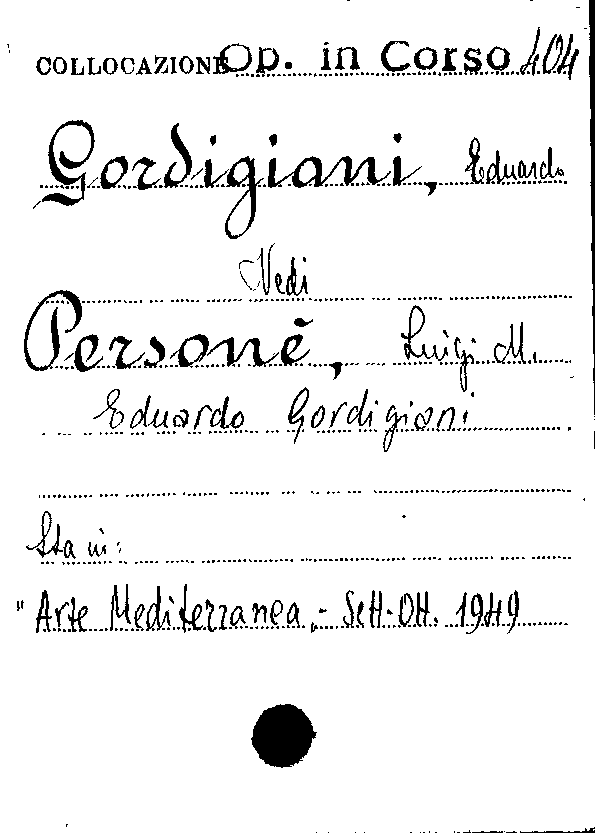 COLLOCAZIONE Op. in Corso 404
Gordigiani, Eduardo
Vedi
Personè, Luigi M.
Eduardo Gordigiani
Sta in:
"Arte Mediterranea„- Sett-Ott. 1949